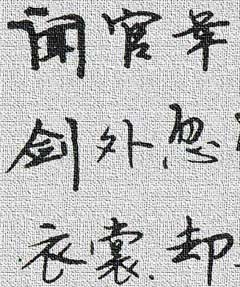 闻官军
剑外忽
衣裳却